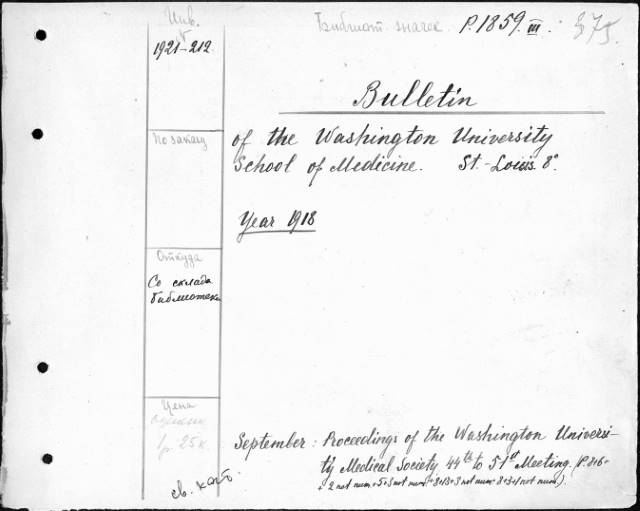 Инв.
1921-212
Библиот. значек P.1859.III. 375.
Bulletin
of the Washington University
School of Medicine. St.-Louis 8°.
Year 1918
По заказу
Откуда
Со склада
библиотеки
Цена
1р. 25к.
св. кат.
September: Proceedings of the Washington Universi-
ty Medical Society 44th to 51st Meeting. (P.816+
+ 2 not num.+5+3 not num.